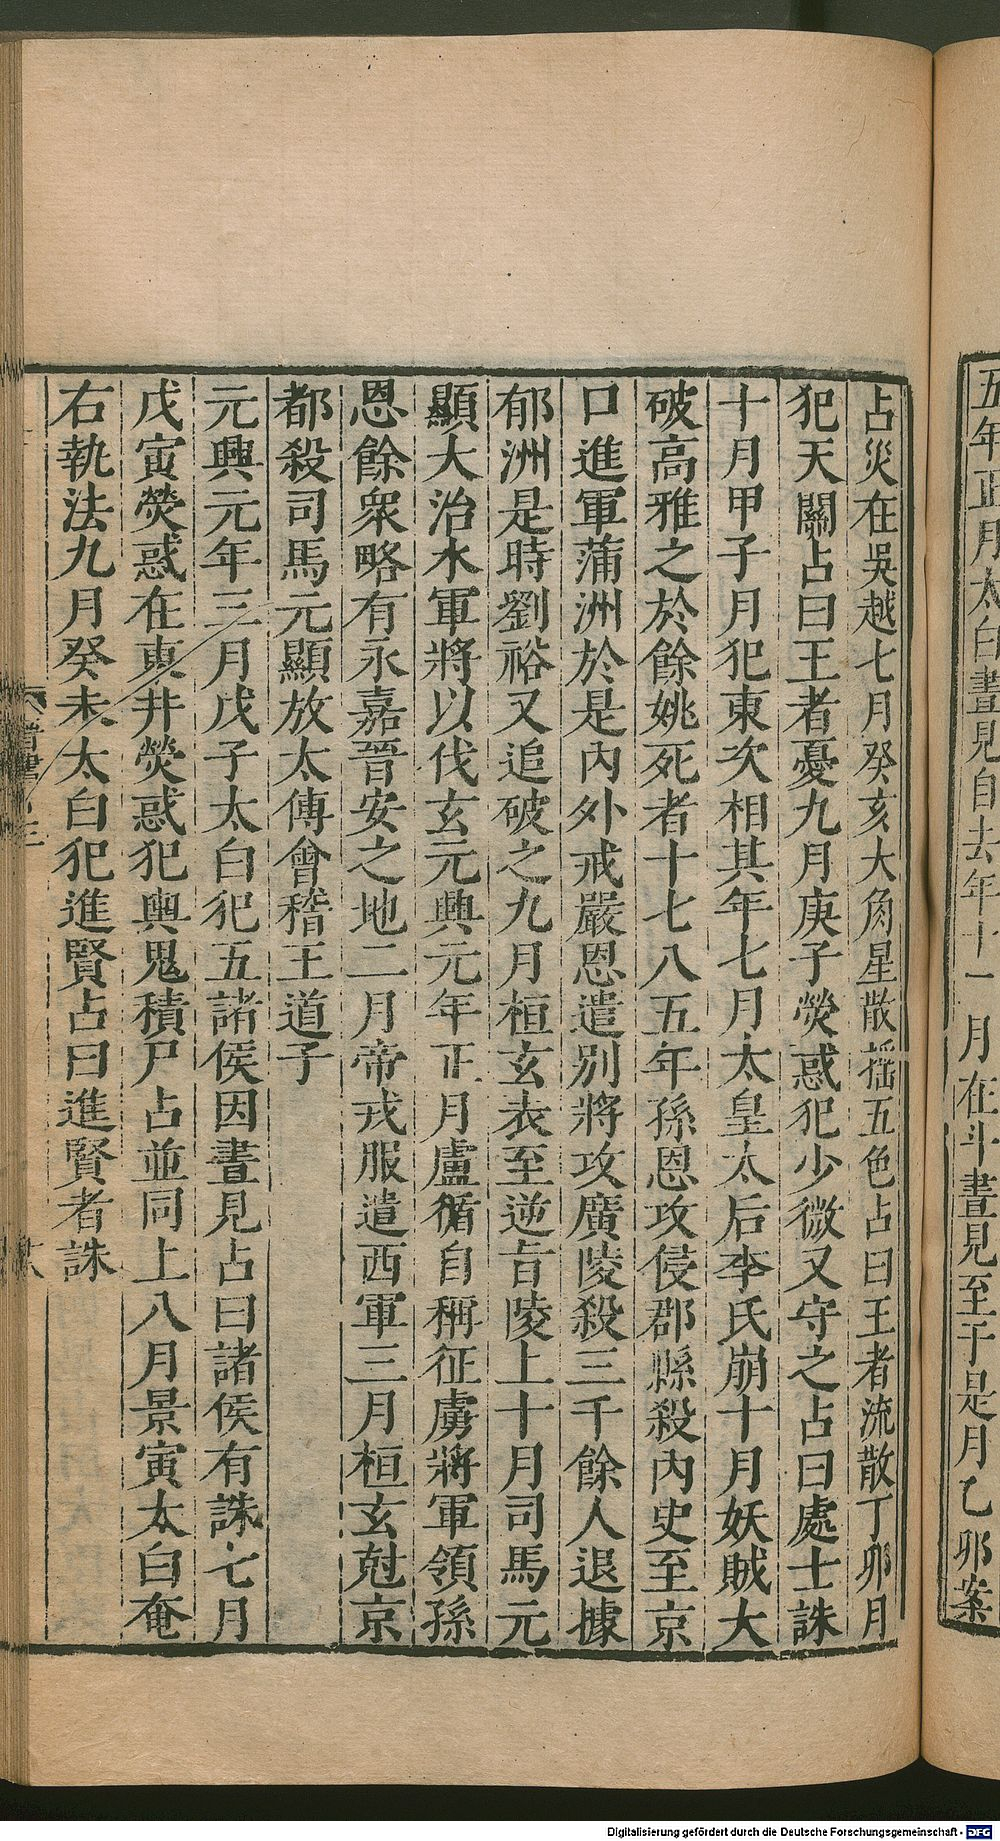 五年正月太白晝見自去年十一月在斗晝見至于是月乙卯案
占災在吳越七月癸亥大角星散搖五色占曰王者流散丁卯月
犯天關占曰王者憂九月庚子熒惑犯少微又守之占曰處士誅
十月甲子月犯東次相其年七月太皇太后李氏崩十月妖賊大
破高雅之於餘姚死者十七八五年孫恩攻侵郡縣殺內史至京
口進軍蒲洲於是內外戒嚴恩遣別將攻廣陵殺三千餘人退據
郁洲是時劉裕又追破之九月桓玄表至逆旨陵上十月司馬元
顯大治水軍將以伐玄元興元年正月盧循自稱征虜將軍領孫
恩餘衆略有永嘉晉安之地二月帝戎服遣西軍三月桓玄尅京
都殺司馬元顯放太傅會稽王道子
元興元年三月戊子太白犯五諸侯因晝見占曰諸侯有誅七月
戊寅熒惑在東井熒惑犯輿鬼積尸占並同上八月景寅太白奄
右執法九月癸未太白犯進賢占曰進賢者誅
Digitalisierung gefördert durch die Deutsche Forschungsgemeinschaft - DFG